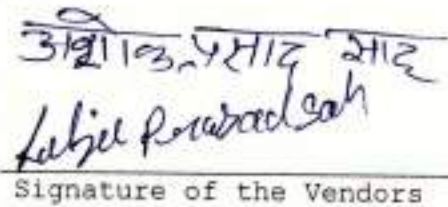 अशोक प्रसाद साह
Prasad Sah
Signature of the Vendors